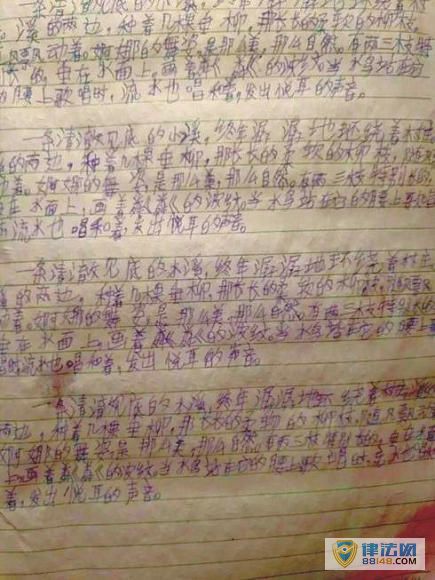 一条清澈见底的小溪,终年潺潺地环绕着村庄
溪的两边,种着几棵垂柳,那长长的柔软的柳枝,
飘动着。婀娜的舞姿,是那么美,那么自然。有两三枝特
长的,垂在水面上,画着粼粼的波纹。当水鸟站在
腰上歌唱时,流水也唱和着,发出悦耳的声音。
一条清澈见底的小溪,终年潺潺地环绕着村庄
的两边,种着几棵垂柳,那长长的柔软的柳枝,随风
动着。婀娜的舞姿,是那么美,那么自然。有两三枝特别长的,
在水面上,画着粼粼的波纹。当水鸟站在它的腰上歌唱
流水也唱和着,发出悦耳的声音。
一条清澈见底的小溪,终年潺潺地环绕着村庄
的两边,种着几棵垂柳,那长长的柔软的柳枝,随风飘
着。婀娜的舞姿,是那么美,那么自然。有两三枝特别长的
垂在水面上,画着粼粼的波纹。当水鸟站在它的腰上
时,流水也唱和着,发出悦耳的声音。
一条清澈见底的小溪,终年潺潺地环绕着
两边,种着几棵垂柳,那长长的柔软的柳枝,随风飘动
婀娜的舞姿,是那么美,那么自然。有两三枝特别长的,垂在水面
上,画着粼粼的波纹。当水鸟站在它的腰上歌唱时,流水也唱
着,发出悦耳的声音。
律法网
88148.com